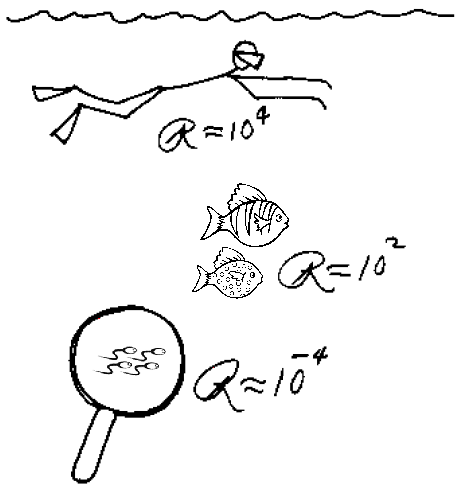 R≈10⁴
R≈10²
R≈10⁻⁴